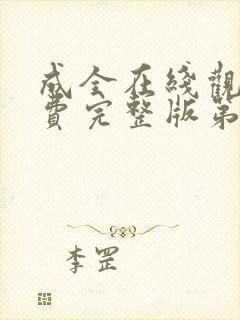 成全在綫觀
費完整版第
李罡